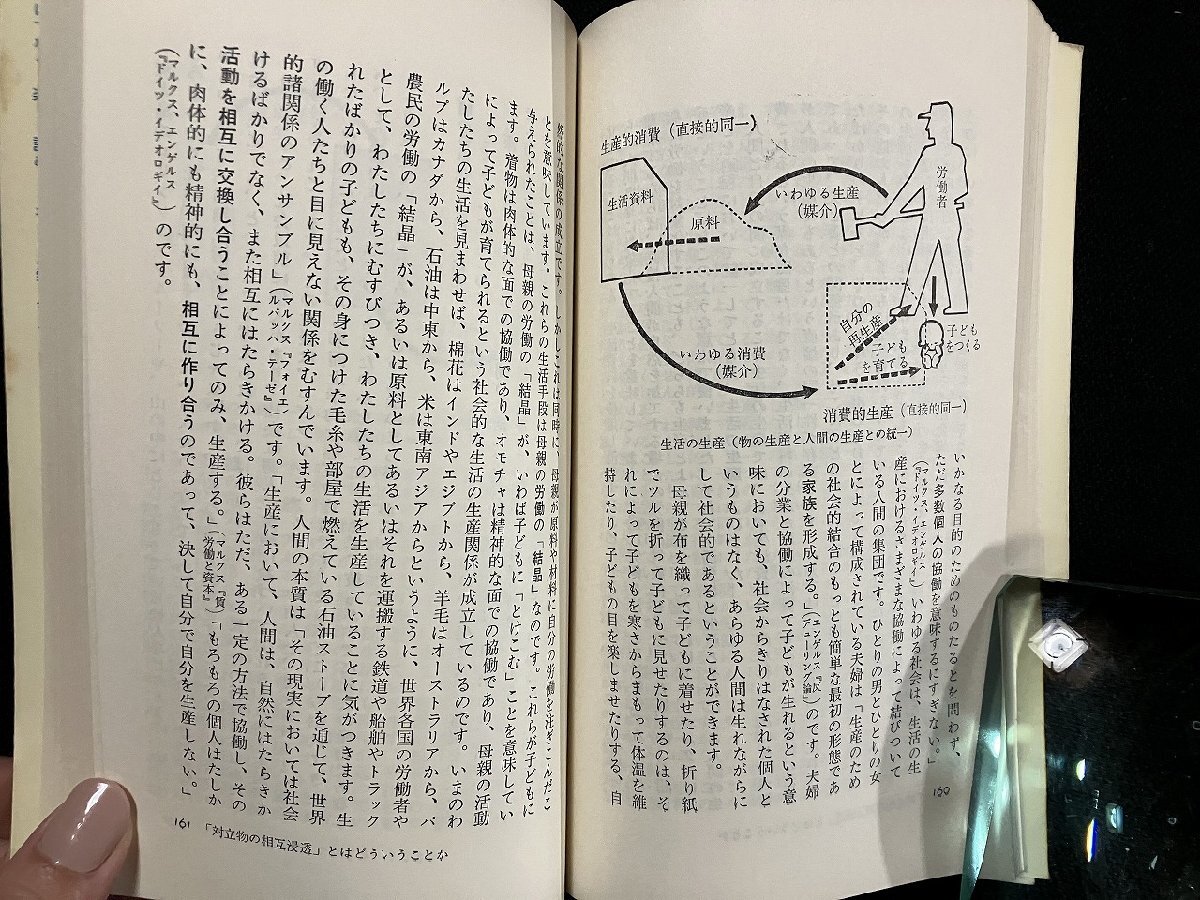 生産的消費（直接的同一）
労働者
生活資料
原料
いわゆる生産
（媒介）
自分の
再生産
子ども
をつくる
いわゆる消費
（媒介）
子ども
を育てる
消費的生産（直接的同一）
生活の生産（物の生産と人間の生産との統一）
いかなる目的のためのものたるとを問わず、
ただ多数個人の協働を意味するにすぎない。」
（マルクス、エンゲルス『ドイツ・イデオロギイ』）いわゆる社会は、生活の生
産におけるさまざまな協働によって結びついて
いる人間の集団です。ひとりの男とひとりの女
とによって構成されている夫婦は「生産のため
の社会的結合のもっとも簡単な最初の形態であ
る家族を形成する。」（エンゲルス『反デューリング論』）のです。夫婦
の分業と協働によって子どもが生れるという意
味においても、社会からきりはなされた個人と
いうものはなく、あらゆる人間は生れながらに
して社会的であるということができます。
母親が布を織って子どもに着せたり、折り紙
でツルを折って子どもに見せたりするのは、そ
れによって子どもを寒さからまもって体温を維
持したり、子どもの目を楽しませたりする、自
160
然的な関係の成立です。しかしこれは同時に、母親が原料や材料に自分の労働を注ぎこんだこ
とも意味しています。これらの生活手段は母親の労働の「結晶」なのです。これらが子どもに
与えられたことは、母親の労働の「結晶」が、いわば子どもに「とけこむ」ことを意味してい
ます。着物は肉体的な面での協働であり、オモチャは精神的な面での協働であり、母親の活動
によって子どもが育てられるという社会的な生活の生産関係が成立しているのです。いまわ
たしたちの生活を見まわせば、棉花はインドやエジプトから、羊毛はオーストラリアから、パ
ルプはカナダから、石油は中東から、米は東南アジアからというように、世界各国の労働者や
農民の労働の「結晶」が、あるいは原料としてあるいはそれを運搬する鉄道や船舶やトラック
として、わたしたちにむすびつき、わたしたちの生活を生産していることに気がつきます。生
れたばかりの子どもも、その身につけた毛糸や部屋で燃えている石油ストーブを通じて、世界
の働く人たちと目に見えない関係をむすんでいます。人間の本質は「その現実においては社会
的諸関係のアンサンブル」（マルクス『フォイエルバッハ・テーゼ』）です。「生産において、人間は、自然にはたらきか
けるばかりでなく、また相互にはたらきかける。彼らはただ、ある一定の方法で協働し、その
活動を相互に交換し合うことによってのみ、生産する。」（マルクス『賃労働と資本』）「もろもろの個人はたしか
に、肉体的にも精神的にも、相互に作り合うのであって、決して自分で自分を生産しない。」
（マルクス、エンゲルス『ドイツ・イデオロギイ』）のです。
161 「対立物の相互浸透」とはどういうことか